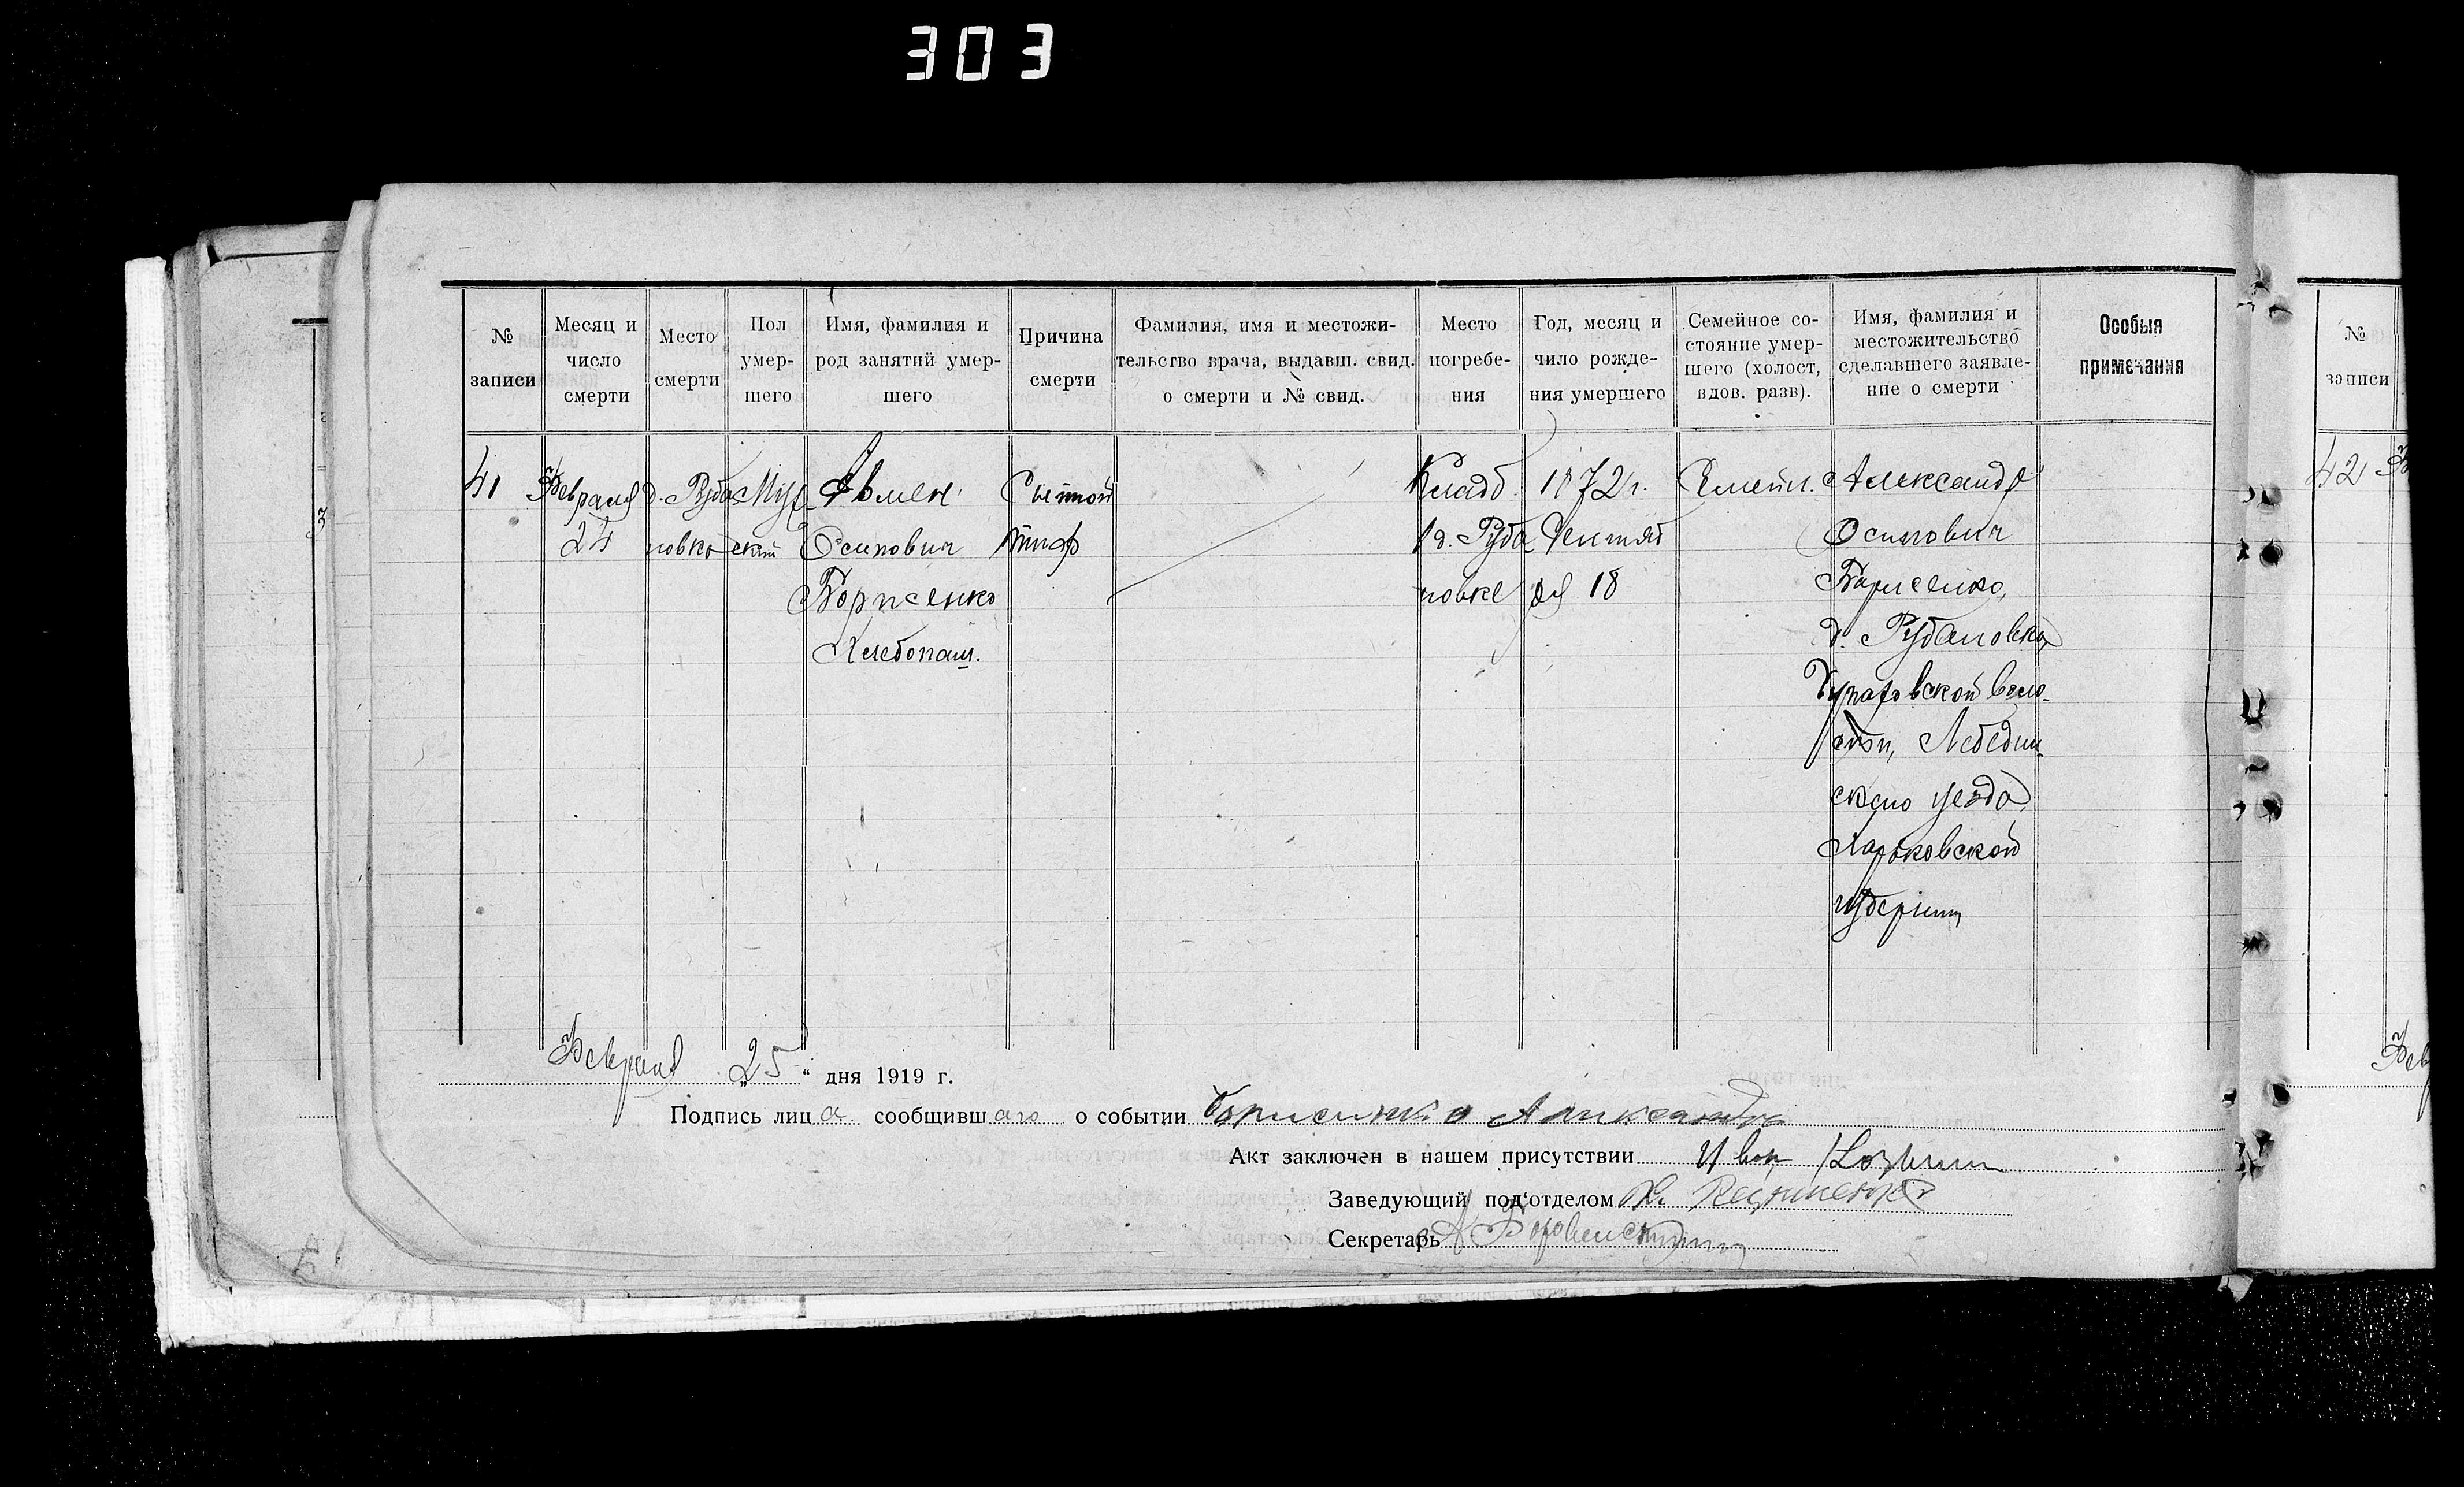 303
№ записи
Месяц и число смерти
Место смерти
Пол умер-шего
Имя, фамилия и род занятий умер-шего
Причина смерти
Фамилия, имя и местожи-тельство врача, выдавш. свид. о смерти и № свид.
Место погребе-ния
Год, месяц и чило рожде-ния умершего
Семейное со-стояние умер-шего (холост, вдов. разв).
Имя, фамилия и местожительство сделавшего заявле-ние о смерти
Особыя примечания
41
Февраля
24
д. Руба
новка
Муж
ской
Осипович
Борисенко
Хлебопаш.
Сыпной
тиф
Кладб.
в д. Руба
новке
1872 г.
Сентяб
ря 18
Семейн.
Александр
Осипович
Борисенко,
д. Рубановка,
воло-
сти, Лебедин
скаго уезда,
Харьковской
губернии
Февраля „25“ дня 1919 г.
Подпись лица сообщившаго о событии Борисенко Александр
Акт заключен в нашем присутствии Иван
Заведующий под'отделом
Секретарь А.
№ записи
42
3